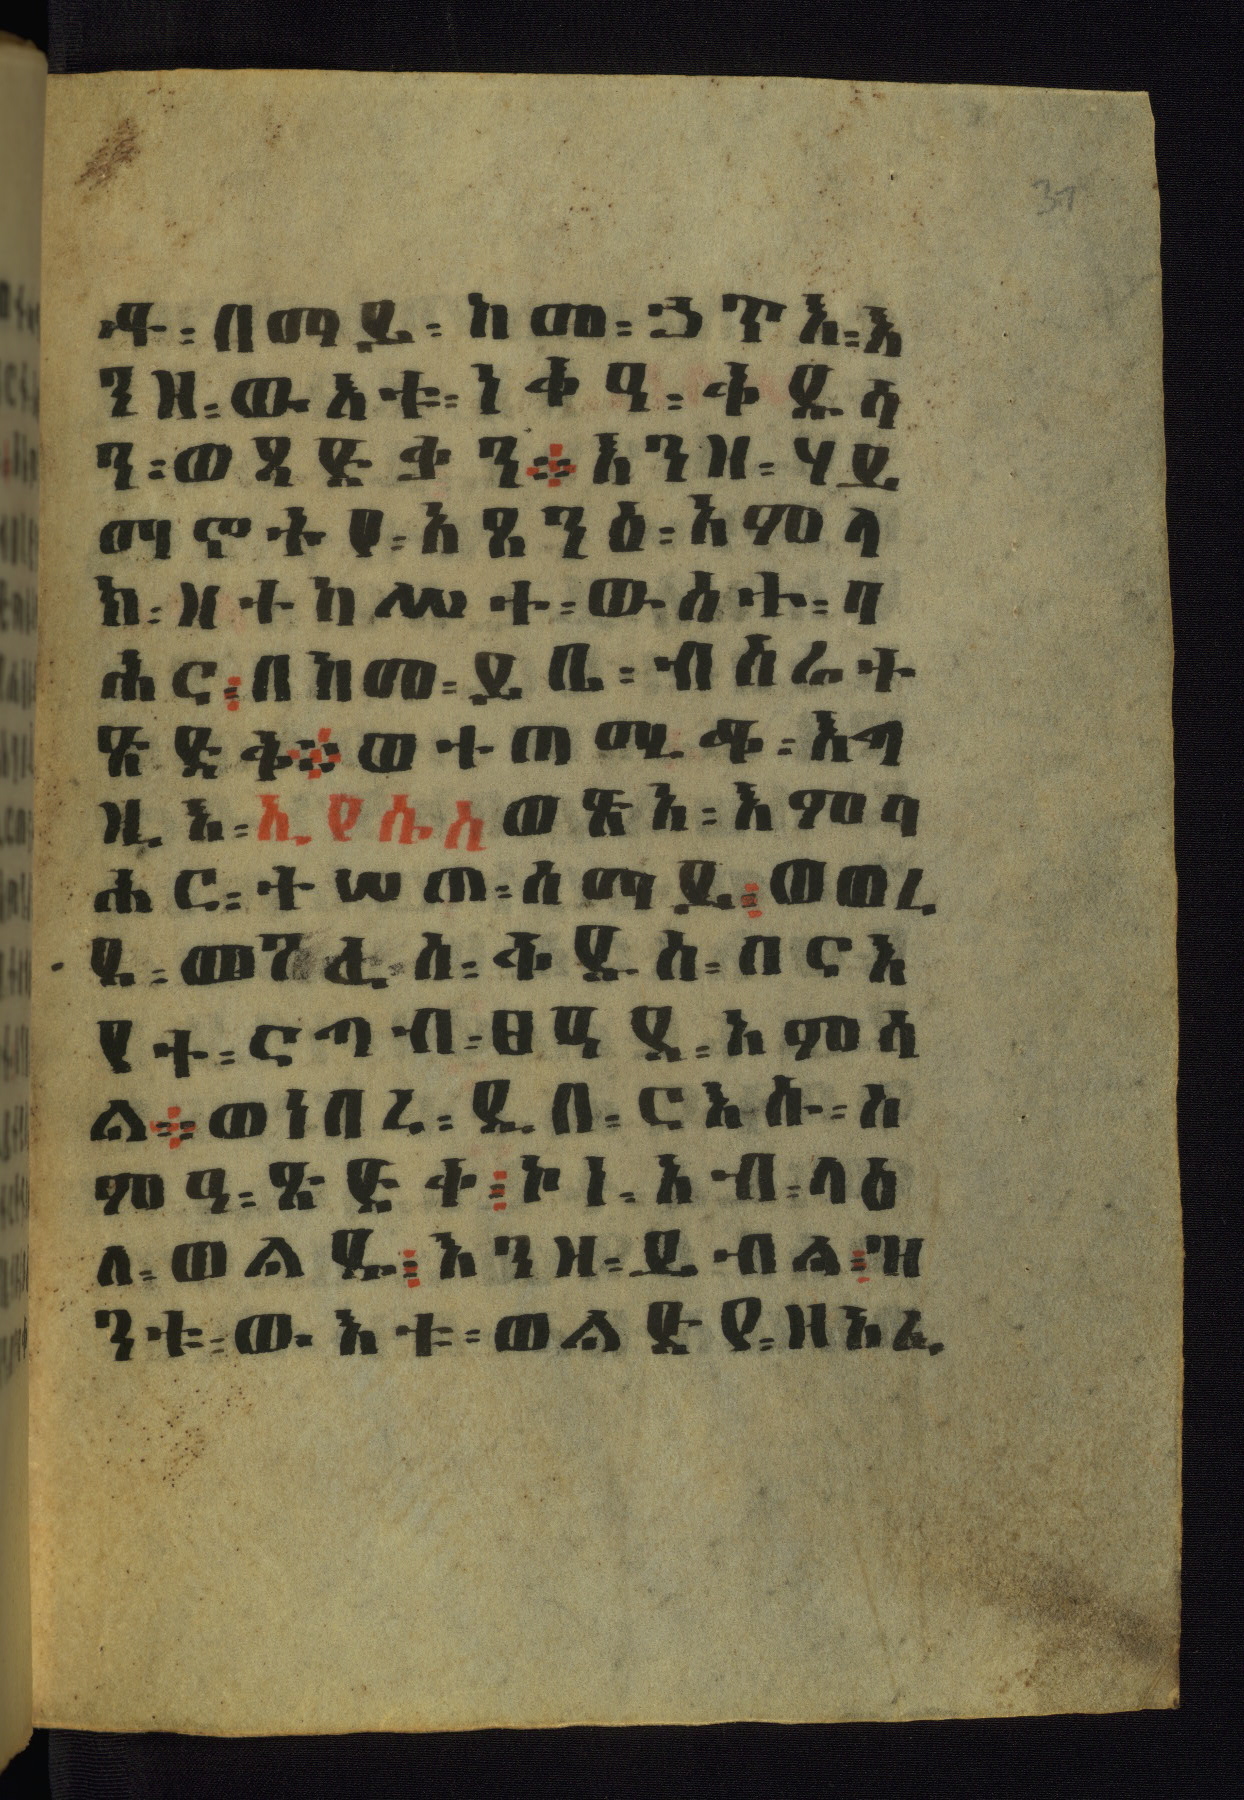 በማይ፡ ከመ፡ ኃጥእ፡ እ
ንዘ፡ ውእቱ፡ ነቅዓ፡ ቅዱሳ
ን፡ ወጻድቃን። እንዘ፡ ሃይ
ማኖቶ፡ ያ፡ አጸንዕ፡ አምላ
ክ፡ ዘተከሠተ፡ ውስተ፡ ባ
ሕር፤ በከመ፡ ይቤ፡ ብስራተ
ጽድቅ። ወተጠሚቆ፡ እግ
ዚእ፡ ኢየሱስ ወፅአ፡ እምባ
ሕር፡ ተሠጠ፡ ሰማይ፤ ወወረ
ደ፡ መንፈስ፡ ቅዱስ፡ በርእ
የተ፡ ርግብ፡ ፀዓዳ፡ አምሳ
ል። ወነበረ፡ ዲበ፡ ርእሱ፡ ስ
ምዓ፡ ጽድቅ፤ ኮነ፡ አብ፡ ላዕ
ለ፡ ወልዱ፤ እንዘ፡ ይብል፤ ዝ
ንቱ፡ ውእቱ፡ ወልድየ፡ ዘአፈ